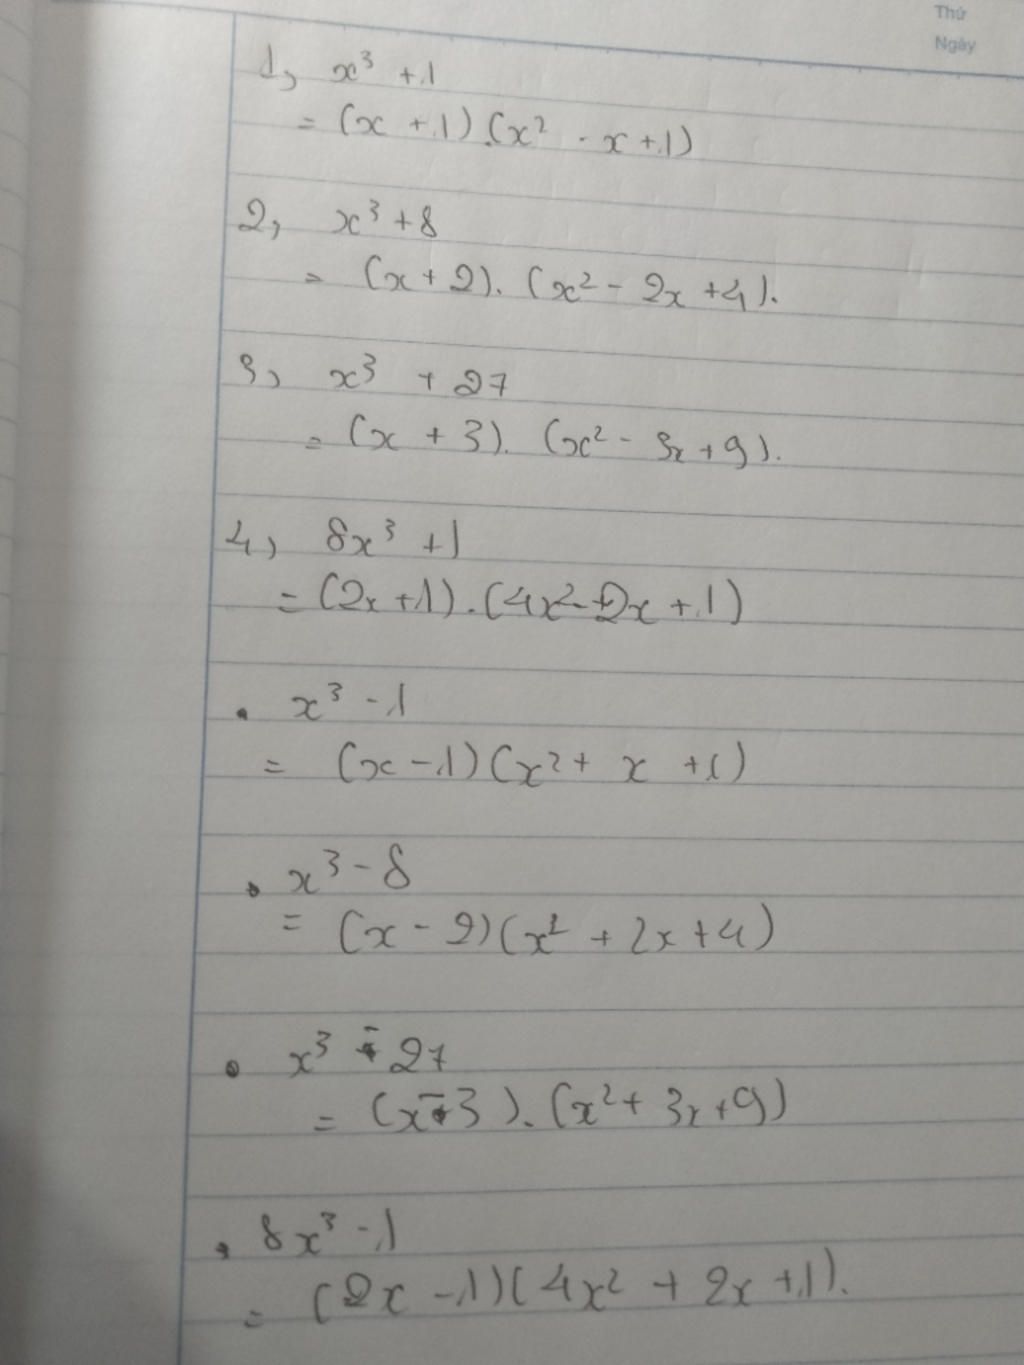 Thứ
Ngày
1, x³ + 1
= (x + 1).(x² - x + 1)
2, x³ + 8
= (x + 2). (x² - 2x + 4).
3, x³ + 27
= (x + 3). (x² - 3x + 9).
4, 8x³ + 1
= (2x + 1). (4x² - 2x + 1)
• x³ - 1
= (x - 1)(x² + x + 1)
• x³ - 8
= (x - 2)(x² + 2x + 4)
• x³ - 27
= (x - 3). (x² + 3x + 9)
• 8x³ - 1
= (2x - 1)(4x² + 2x + 1).